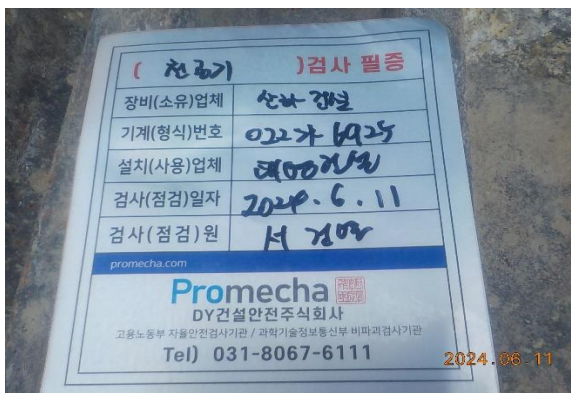 ( 천공기 )검사 필증
장비(소유)업체 산하건설
기계(형식)번호 022가 6925
설치(사용)업체 태영건설
검사(점검)일자 2024.6.11
검사(점검)원 서
promecha.com
Promecha
DY건설안전주식회사
고용노동부 자율안전검사기관 / 과학기술정보통신부 비파괴검사기관
Tel) 031-8067-6111
2024.06.11